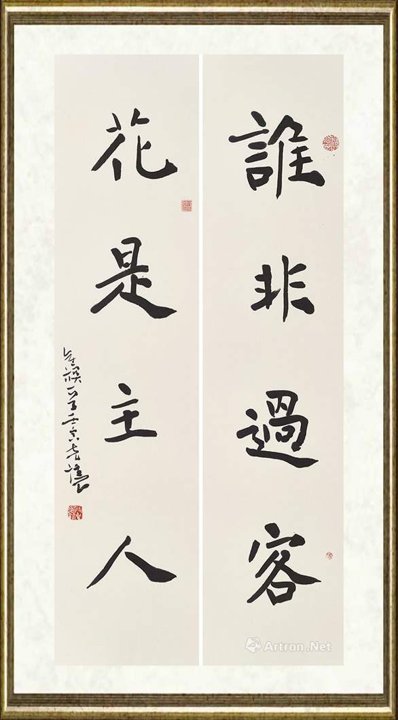 誰非過客
花是主人
Artron.Net